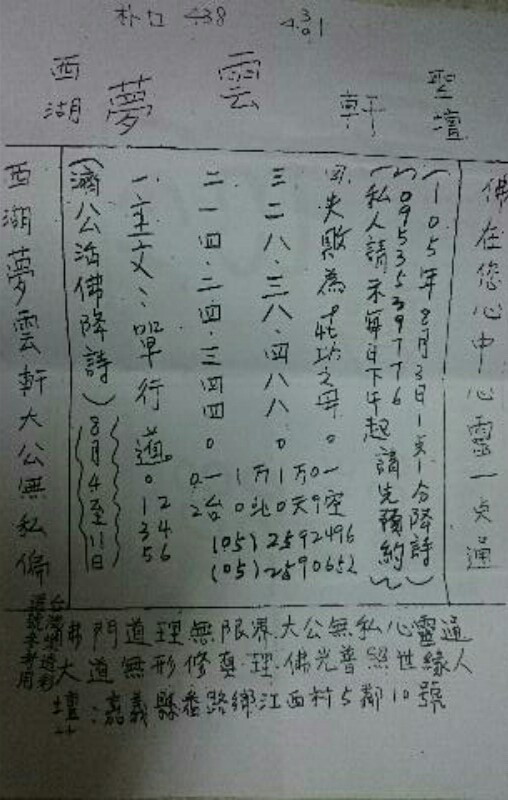 朴口 438 4301
西湖 夢 雲 軒 聖壇
佛在您心中心靈一点通
(一○5年8月3日1点1分降詩)
(0953539776)
(私人請示每日下午起請先預約)
四、失敗為成功之母。
三、二八、三八、四八八。
二、一四、二四、三四四。
一、主文、單行道。
01 2
3 4
5 6
一1万1万0一
2台0北0天9空
(05) 2592496
(05) 2590652
(濟公活佛降詩)
(8月4至11日)
西湖夢雲軒大公無私偏
佛門道理無限界.大公無私心靈通
大道無形修真理.佛光普照世緣人
壇:嘉義縣番路鄉江西村5鄰10號